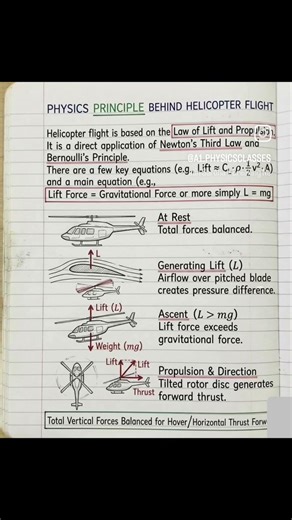 PHYSICS PRINCIPLE BEHIND HELICOPTER FLIGHT
Helicopter flight is based on the Law of Lift and Propulsion.
@A1.PHYSICSCLASSES
It is a direct application of Newton's Third Law and
Bernoulli's Principle.
There are a few key equations (e.g., Lift ≈ C · ρ · ½ v² · A)
and a main equation (e.g.,
Lift Force = Gravitational Force or more simply L = mg
At Rest
Total forces balanced.
L
Generating Lift (L)
Airflow over pitched blade
creates pressure difference.
Lift (L)
Ascent (L > mg)
Lift force exceeds
gravitational force.
Weight (mg)
Lift
Lift
Thrust
Propulsion & Direction
Tilted rotor disc generates
forward thrust.
Total Vertical Forces Balanced for Hover/Horizontal Thrust Forw